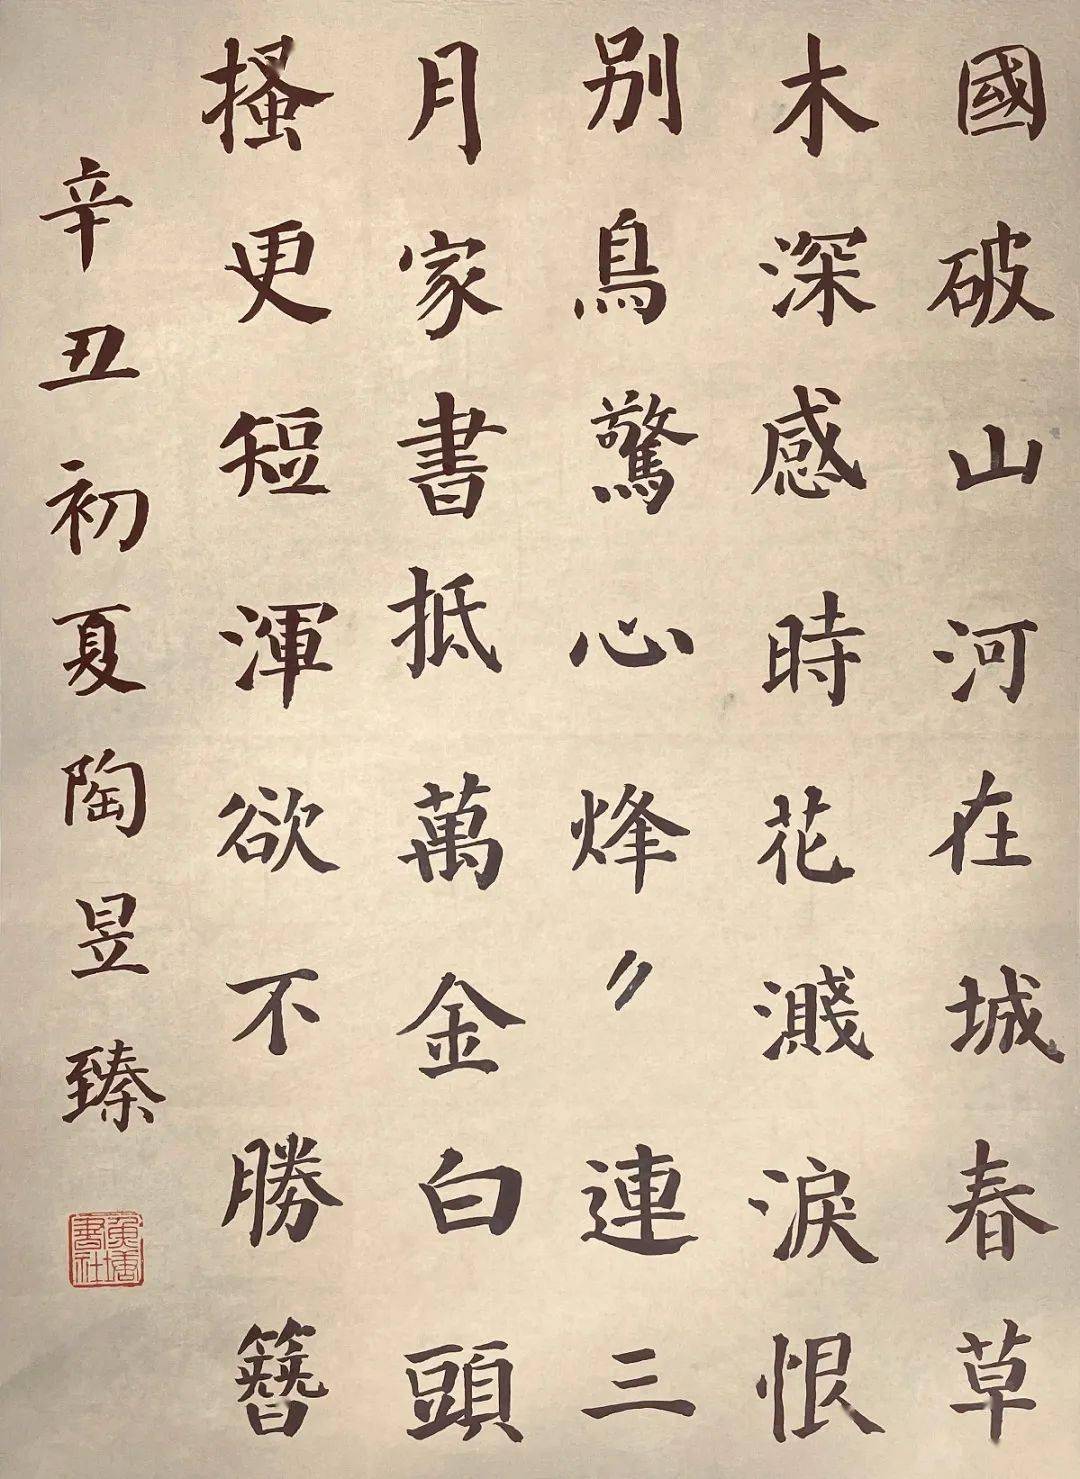 國破山河在城春草
木深感時花濺淚恨
别鳥驚心烽〃連三
月家書抵萬金白頭
搔更短渾欲不勝簪
辛丑初夏陶昱臻
書社